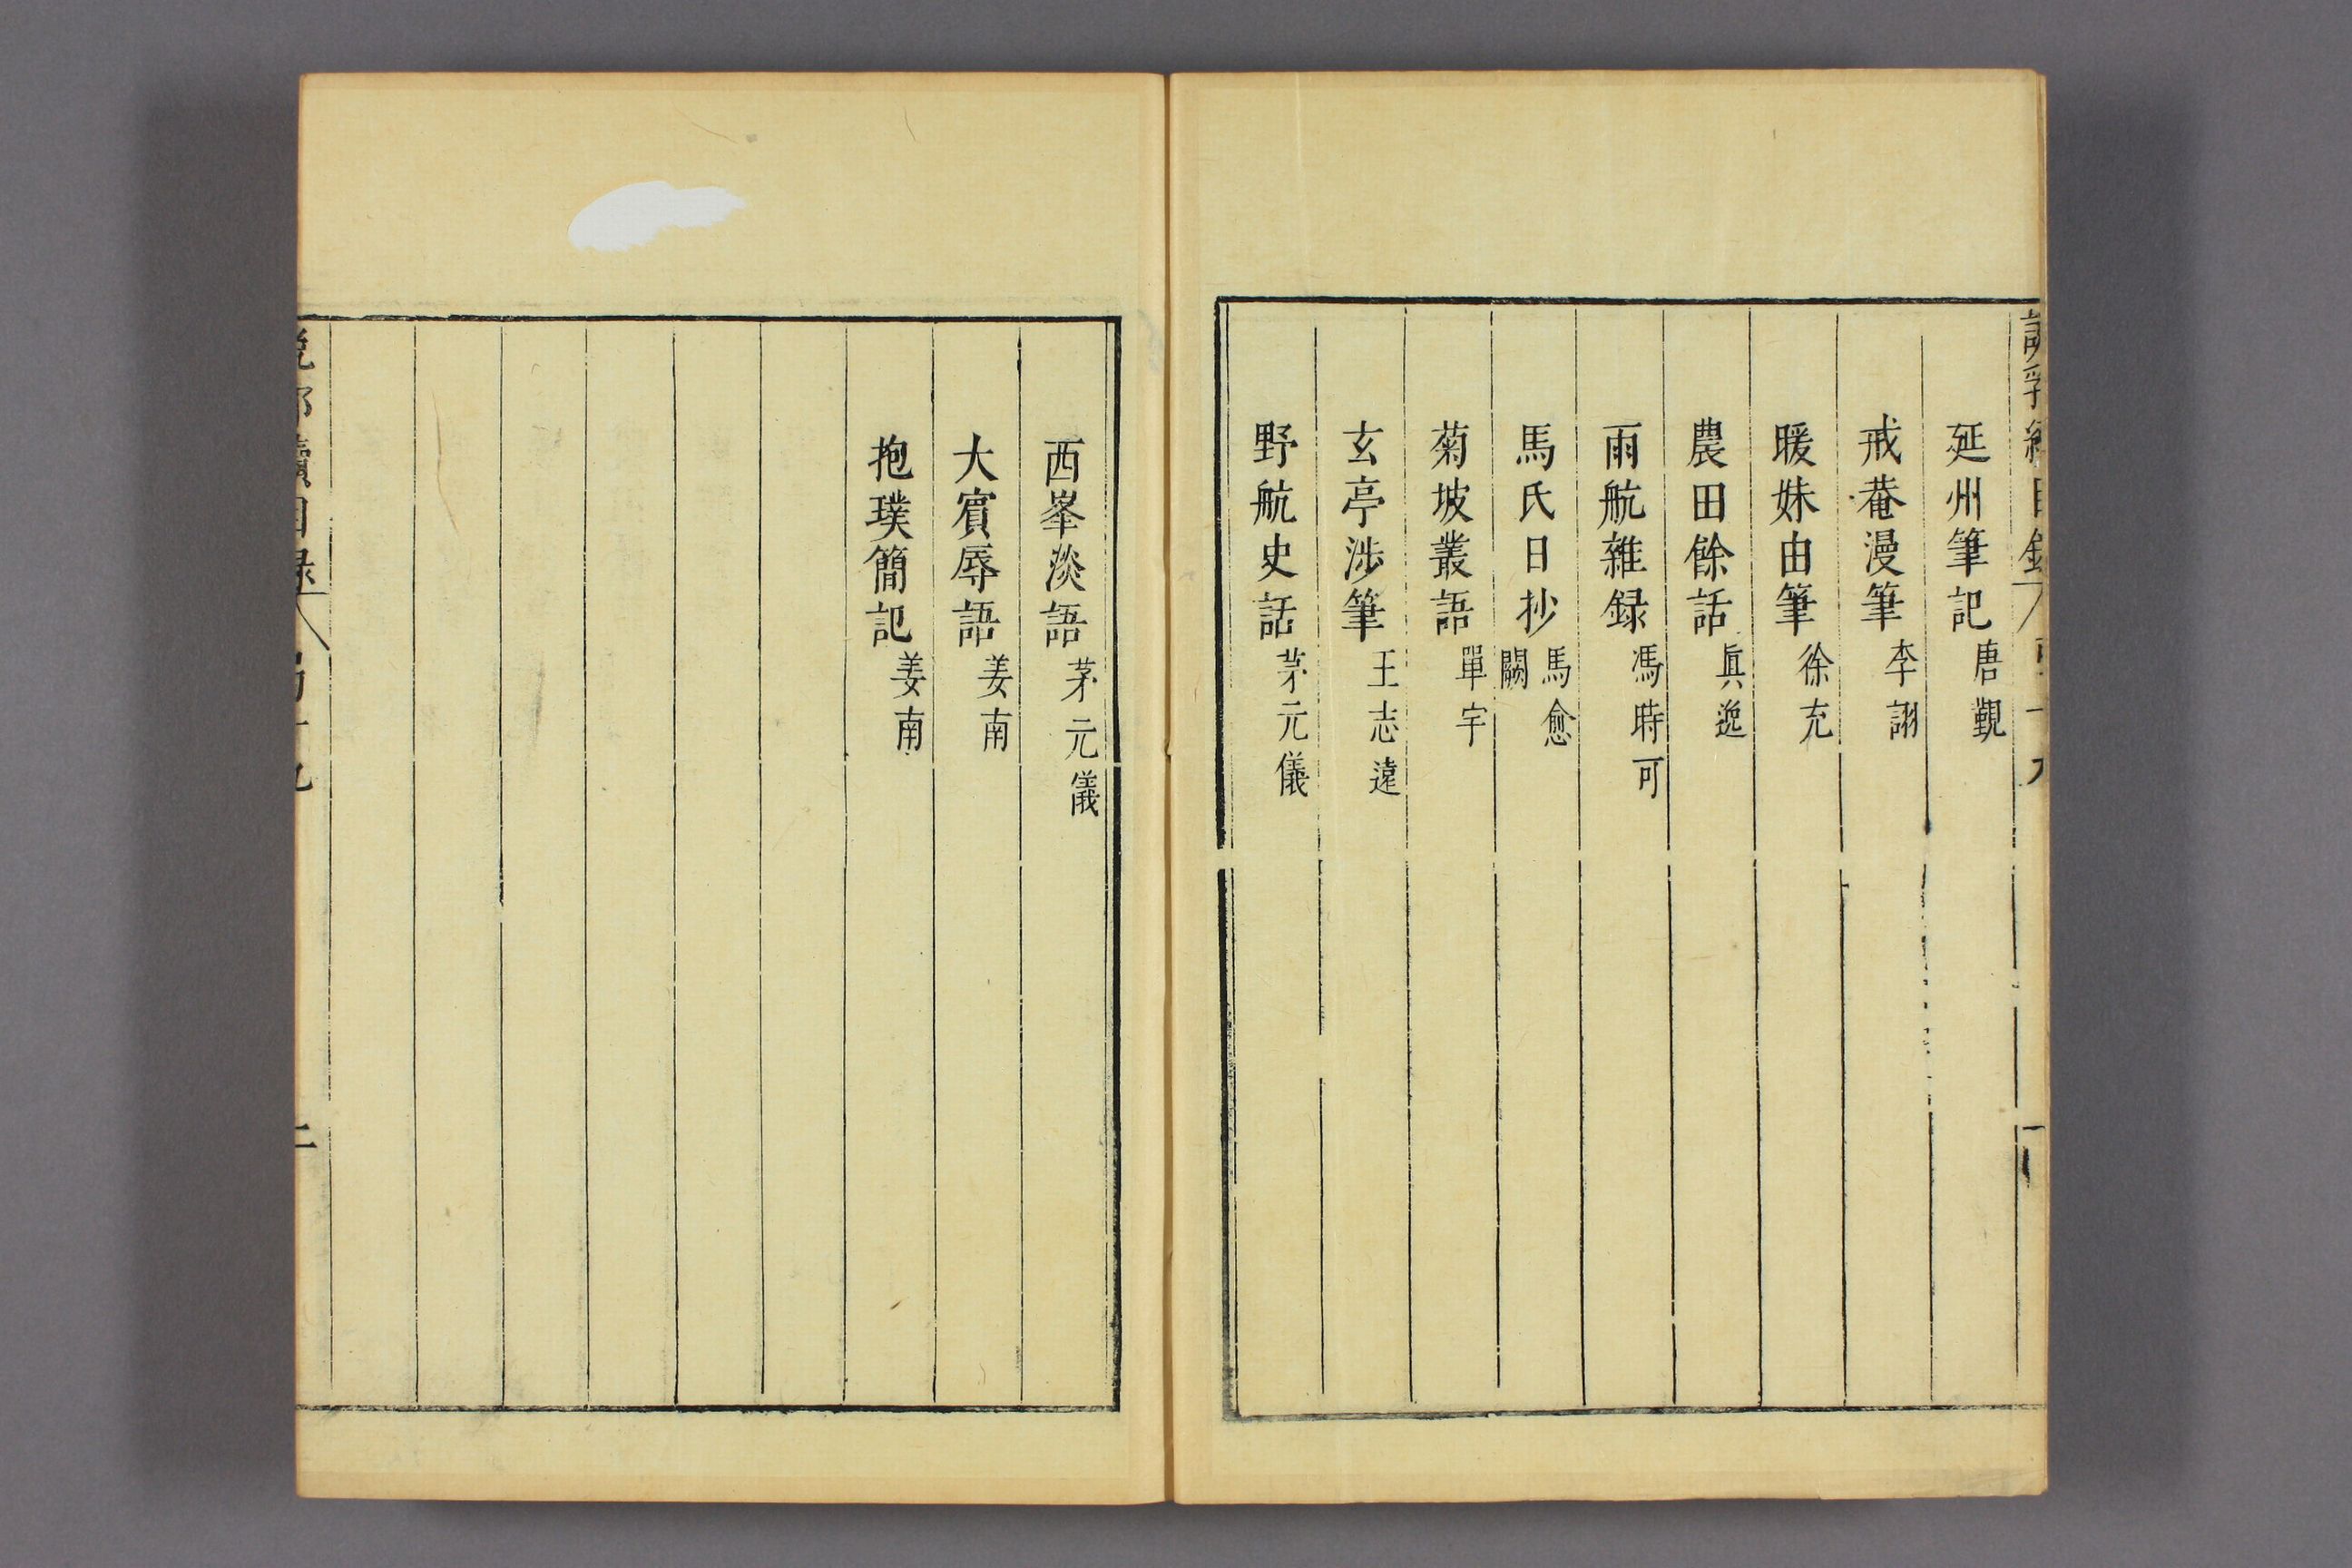 延州筆記 唐覲
戒菴漫筆 李詡
暖姝由筆 徐充
農田餘話 眞逸
雨航雜録 馮時可
馬氏日抄 馬愈 闕
菊坡叢語 單宇
玄亭渉筆 王志遠
野航史話 茅元儀
西峯淡語 茅元儀
大賓辱語 姜南
抱璞簡記 姜南